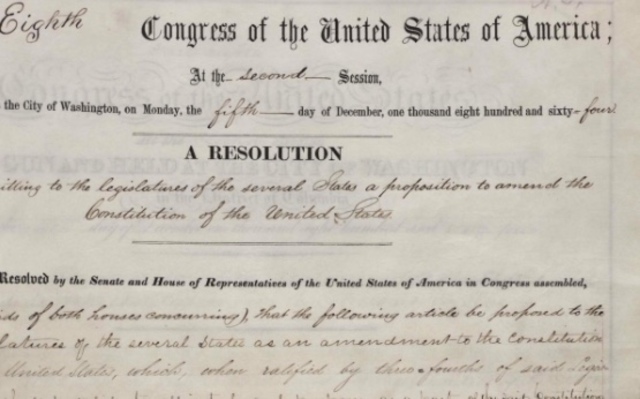 Eighth Congress of the United States of America;
At the second Session,
the City of Washington, on Monday, the fifth day of December, one thousand eight hundred and sixty-four
A RESOLUTION
itting to the legislatures of the several States a proposition to amend the
Constitution of the United States
Resolved by the Senate and House of Representatives of the United States of America in Congress assembled,
ds of both houses concurring), that the following article be proposed to the
latures of the several States as an amendment to the Constitution
United States, which, when ratified by three-fourths of said Legis